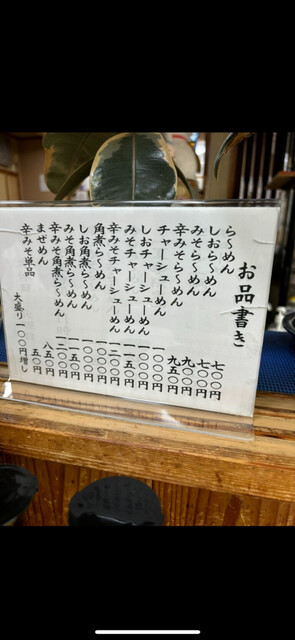 お品書き
ら〜めん 七〇〇円
しおら〜めん 七〇〇円
みそら〜めん 九〇〇円
辛みそら〜めん 九五〇円
チャーシューめん 一〇〇〇円
しおチャーシューめん 一〇〇〇円
みそチャーシューめん 一一五〇円
辛みそチャーシューめん 一二〇〇円
角煮ら〜めん 一〇〇〇円
しお角煮ら〜めん 一〇〇〇円
みそ角煮ら〜めん 一一五〇円
辛みそ角煮ら〜めん 一二〇〇円
まぜめん 八五〇円
辛みそ単品 五〇円
大盛り 一〇〇円増し